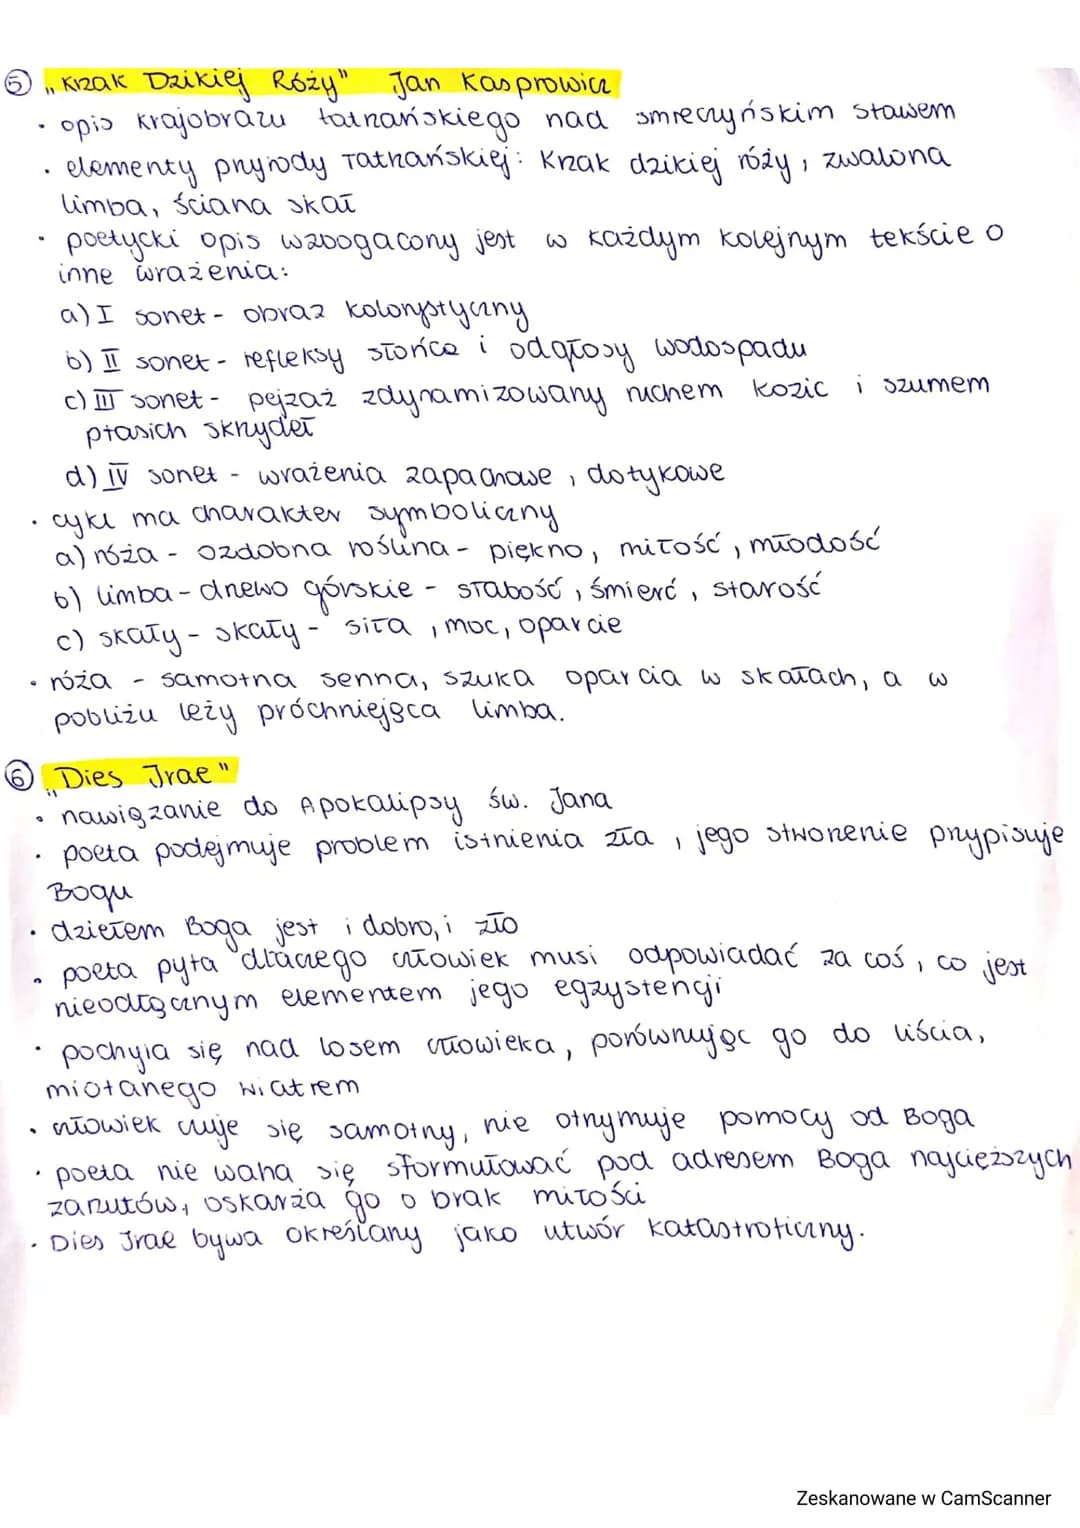 ⑤ „Krzak Dzikiej Róży" Jan Kasprowicz
· opis krajobrazu tatrzańskiego nad smreczyńskim stawem
· elementy przyrody Tatrzańskiej: Krzak dzikiej róży, zwalona
limba, ściana skał
· poetycki opis wzbogacony jest w każdym kolejnym tekście o
inne wrażenia:
a) I sonet - obraz kolorystyczny
b) II sonet - refleksy słońca i odgłosy wodospadu
c) III sonet - pejzaż zdynamizowany ruchem kozic i szumem
ptasich skrzydeł
d) IV sonet - wrażenia zapachowe, dotykowe
· cykl ma charakter symboliczny
a) róża - ozdobna roślina - piękno, miłość, młodość
b) limba - drzewo górskie - słabość, śmierć, starość
c) skały - skały - siła, moc, oparcie
· róża - samotna senna, szuka oparcia w skałach, a w
pobliżu leży próchniejąca limba.
⑥ „Dies Irae"
· nawiązanie do Apokalipsy św. Jana
· poeta podejmuje problem istnienia zła, jego stworzenie przypisuje
Bogu
· dziełem Boga jest i dobro, i zło
· poeta pyta dlaczego człowiek musi odpowiadać za coś, co jest
nieodłącznym elementem jego egzystencji
· pochyla się nad losem człowieka, porównując go do liścia,
miotanego wiatrem
· człowiek czuje się samotny, nie otrzymuje pomocy od Boga
· poeta nie waha się sformułować pod adresem Boga najcięższych
zarzutów, oskarża go o brak miłości
· Dies Irae bywa określany jako utwór katastroficzny.
Zeskanowane w CamScanner